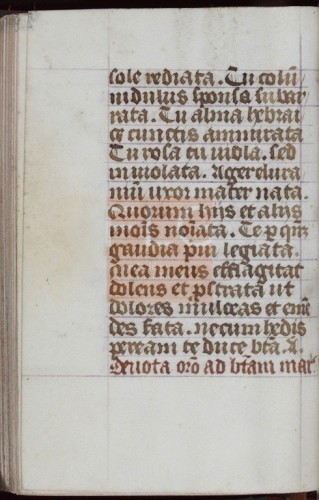 sole rediata. Tu colū
nidulus sponse subar
rata. Tu alma hebrai
ce cunctis ammirata
Tu rosa tu viola. sed
inviolata. Aggere
nūī uxor mater nata.
Quorum hiis et aliis
nōīa. Te p que
gaudia privilegiata.
mea mens efflagitat
dolens et pstrata ut
dolores mulceas et eme
des fata. ne cum hedis
peream te duce btā. A.
Devota orō ad btām mar